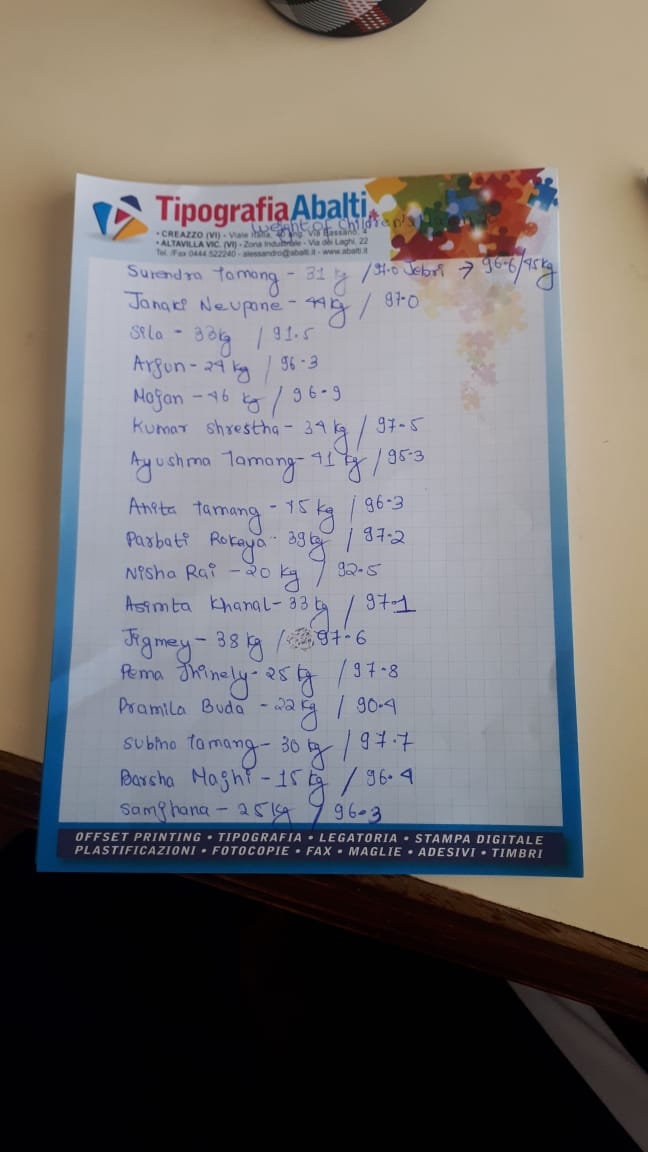 TipografiaAbalti
Weight of Children's
• CREAZZO (VI) - Viale Italia, ang. Via Bassano, 4
• ALTAVILLA VIC. (VI) - Zona Industriale - Via dei Laghi, 22
Tel. /Fax 0444.522240 - alessandro@abalti.it - www.abalti.it
Surendra Tamang - 31 kg / 97.0 Jebri → 96-6/45kg
Janaki Neupane - 44kg / 97.0
Sila - 33kg / 91.5
Arjun - 24 kg / 96-3
Mojan - 46 kg / 96-9
Kumar Shrestha - 34 kg / 97-5
Ayushma Tamang - 41 kg / 95-3
Anita Tamang - 45 kg / 96-3
Parbati Rokaya - 39kg / 97-2
Nisha Rai - 20 kg / 92.5
Asimta Khanal - 33 kg / 97.1
Jigmey - 38 kg / 97-6
Pema Thinely - 25 kg / 97-8
Pramila Buda - 22 kg / 90.4
Subina Tamang - 30 kg / 97.7
Barsha Majhi - 15 kg / 96.4
Samjhana - 25 kg / 96.3
OFFSET PRINTING • TIPOGRAFIA • LEGATORIA • STAMPA DIGITALE
PLASTIFICAZIONI • FOTOCOPIE • FAX • MAGLIE • ADESIVI • TIMBRI